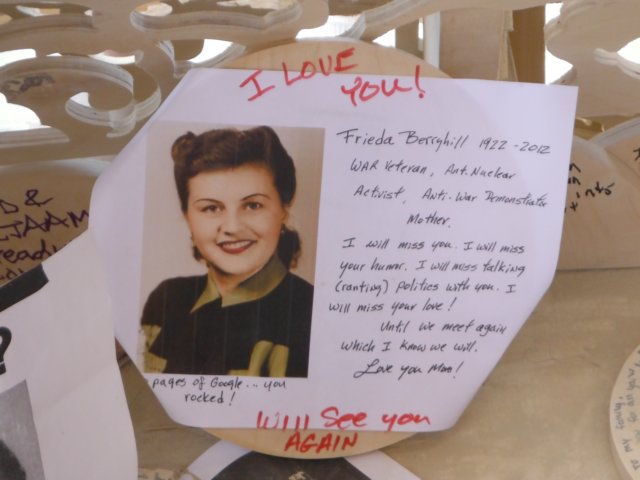 I LOVE
YOU!
Frieda Berryhill 1922-2012
WAR Veteran, Ant. Nuclear
Activist, Anti-War Demonstrator
Mother.
I will miss you. I will miss
your humor. I will miss talking
(ranting) politics with you. I
will miss your love!
Until we meet again
which I know we will.
Love you Mom!
pages of Google... you
rocked!
Will See you
AGAIN
D &
ready
to my family,